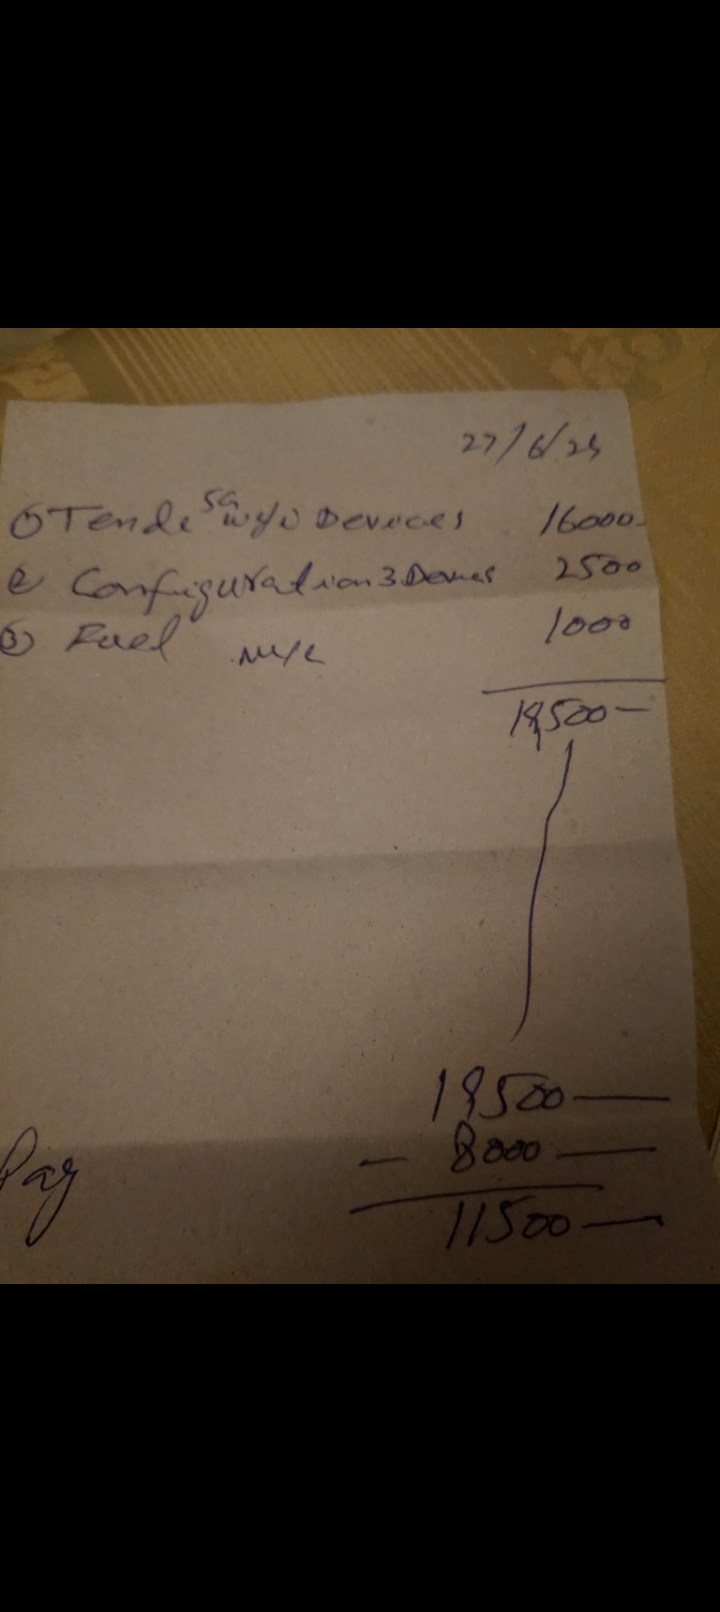 27/6/25
① Tende 5G Devices 16000
② Configuration 3 Devices 2500
③ Fuel M/C 1000
19,500 —
19,500 —
Pay - 8000 —
11500 —